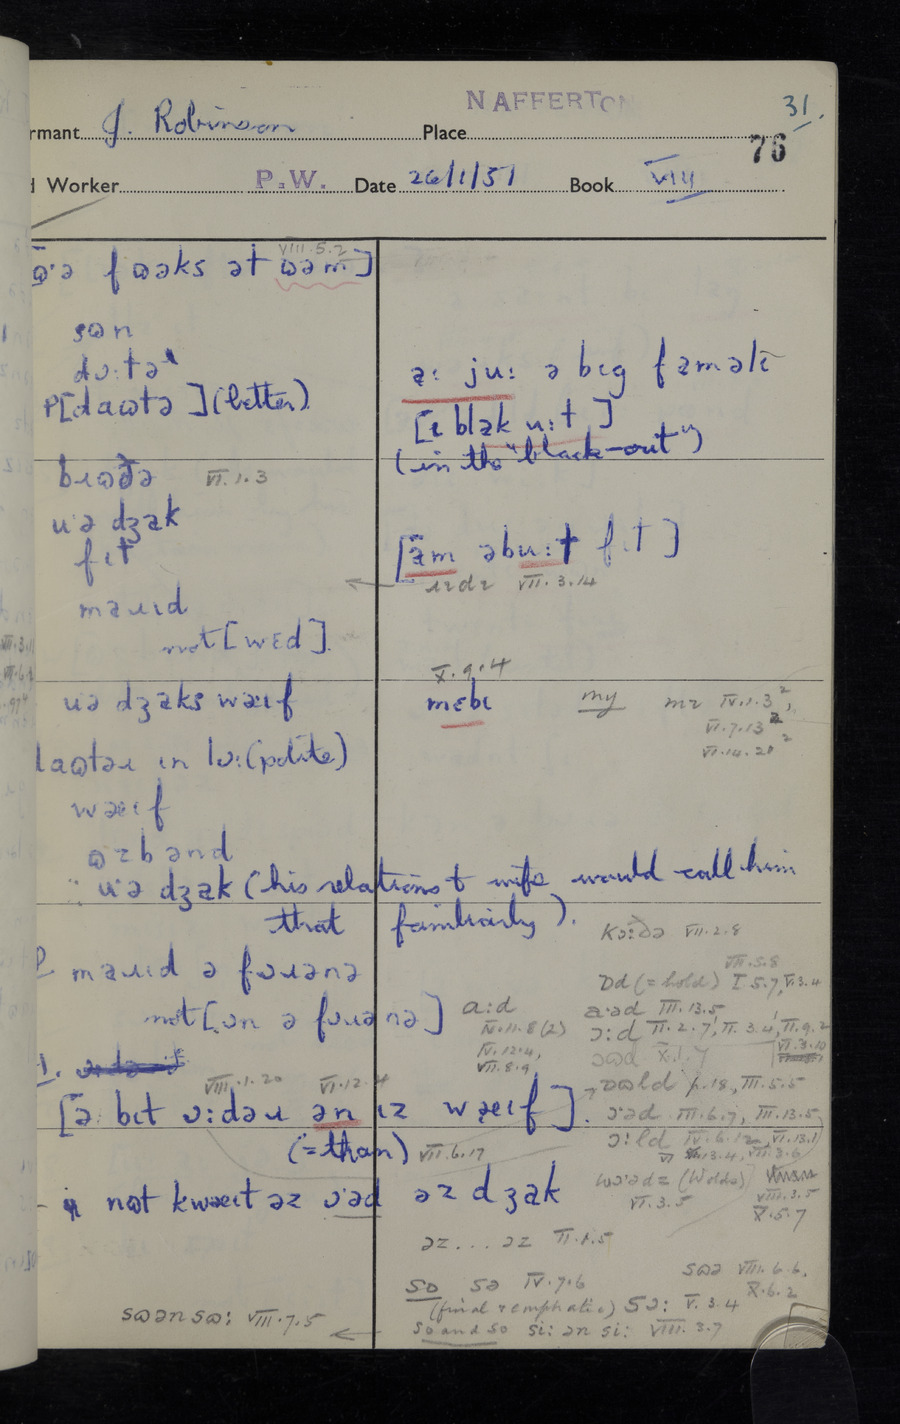 NAFFERTON
31.
rmant J. Robinson Place
76
d Worker P.W. Date 26/1/51 Book VIII
VIII.5.2
fɷəks ət ɷəm]
sɷn
dɔ:tə
P[daɷtə] (better).
a: ju: ə bɪg faməlɪ
[ɪ blak u:t]
(in the "black-out")
bɹɷðə VI.1.3
u'ə dʒak
fɪt
[am əbu:t fɪt]
ɹadɹ VII.3.14
maɹɪd
not [wɛd].
X.9.4
uə dʒaks waɪf
mɛbɪ
my mɪ IV.1.3²,
VI.7.13²
VI.14.20²
laɷtəɹ ɪn lɔ: (polite)
waɪf
ɷzbənd
u'ə dʒak (his relations & wife would call him
that familiarly).
kɔ:də VII.2.8
VII.5.8
P maɹɪd ə fɔɹənə
ɒd (=hold) I 5.7, V.3.4
not [ɔn ə fɔɹənə]
a:d
IV.11.8(2)
IV.12.4,
VII.8.9
a'əd III.13.5
ɔ:d II.2.7, II.3.4, II.9.2
ɔɷd X.1.7
VI.3.10
VIII.1.20 VI.12.4
ɔɷld p.18, III.5.5
[ə bɪt ɔ:dəɹ ən ɪz waɪf].
ɔ'əd III.6.7, III.13.5
(=than) VII.6.17
ɔ:ld IV.6.12, VI.13.1
VI.13.4, VII.3.6
nɒt kwaɪt əz ɔ'əd əz dʒak
wɔ'ədz (Wolds)
VI.3.5
VIII.3.5
X.5.7
əz...əz II.1.5
so sə IV.7.6
sɷə VIII.6.6,
X.6.2
(final & emphatic) sɔ: V.3.4
sɷən sɷ: VIII.7.5
so and so si: ən si: VIII.3.7